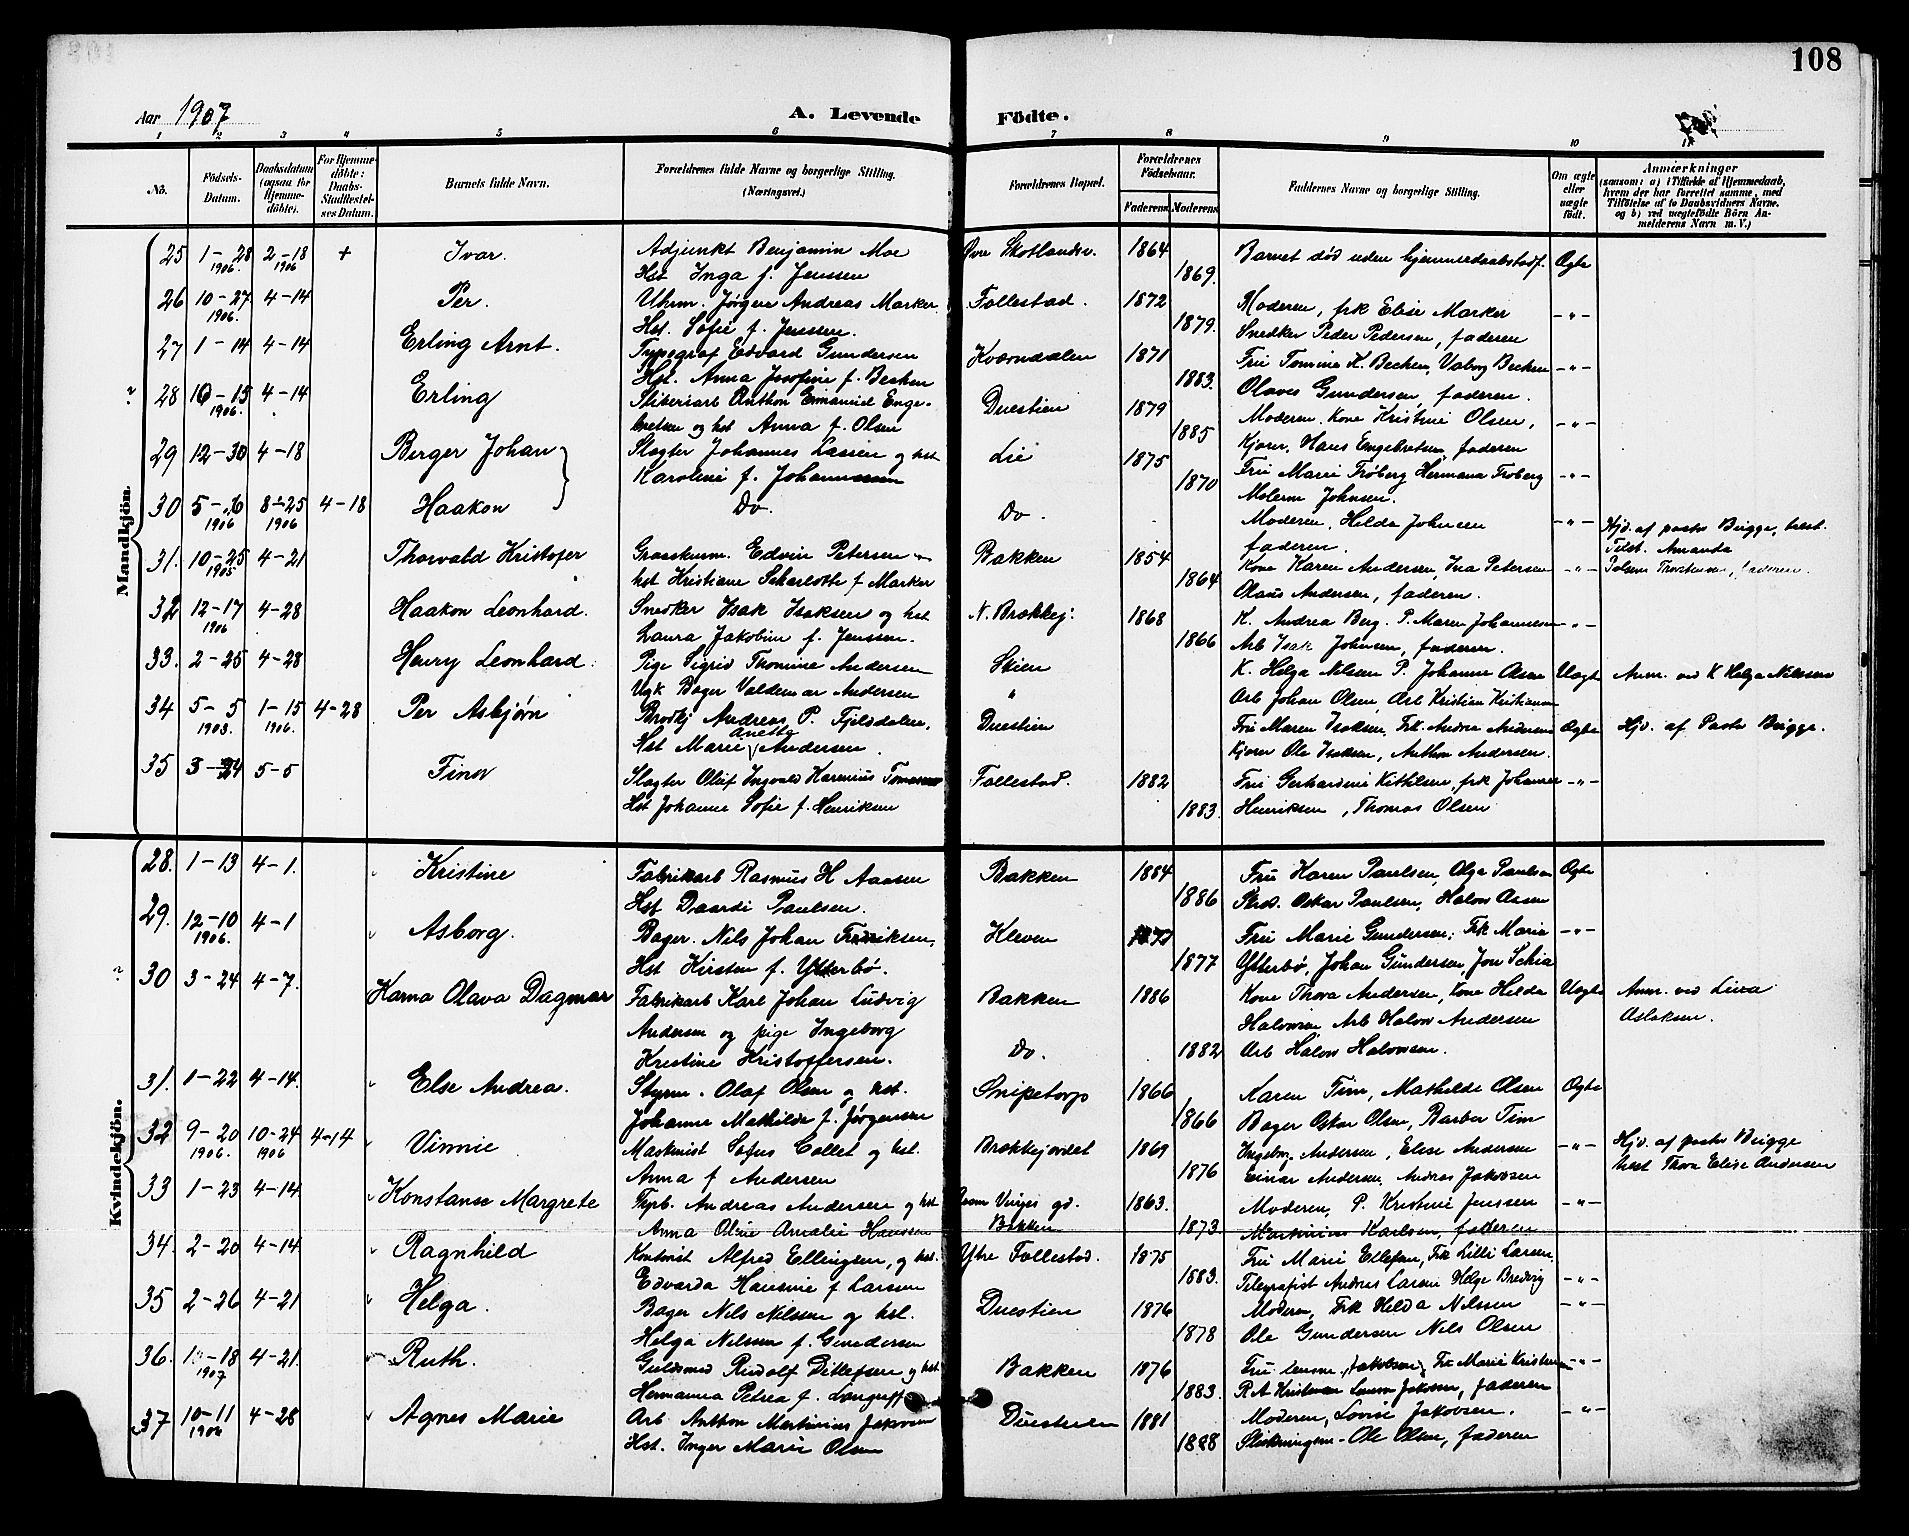 108
Aar 1907
A. Levende Födte.
1 2 3 4 5 6 7 8 9 10 11
No.
Födsels-Datum.
Daabsdatum (ogsaa for Hjemme-döbte).
For Hjemme-döbte: Daabs-Stadfæstel-ses Datum.
Barnets fulde Navn.
Forældrenes fulde Navne og borgerlige Stilling.
(Næringsvei.)
Forældrenes Bopæl.
Forældrenes Födselsaar.
Faderens Moderens
Faddernes Navne og borgerlige Stilling.
Om ægte eller uægte födt.
Anmærkninger
(saasom: a) i Tilfælde af Hjemmedaab, hvem der har forrettet samme, med Tilföielse af to Daabsvidners Navne, og b) ved uægtefödte Börn An-melderens Navn m. V.)
Mandkjön.
25 1-28 1906. 2-18 1906 + Ivar. Adjunkt Benjamin Moe Øvre Skotlandsv. 1864 Barnet død uden hjemmedaabstadf. Ægte
Hst Inga f. Jenssen 1869.
26 10-27 1906. 4-14 Per. Uhrm. Jørgen Andreas Marker Follestad. 1872 Moderen, frk Elise Marker -"-
Hst. Sofie f. Jenssen. 1879. Snedker Peder Pedersen, faderen
27 1-14 4-14 Erling Arnt. Typograf Edvard Gundersen Kværndalen 1871 Fru Tomine K. Becken, Valborg Becken -"-
Hst. Anna Josefine f. Becken 1883. Olaves Gundersen, faderen.
28 10-15 1906. 4-14 Erling Sliberiarb Anthon Emanuel Enge- Duestien 1879 Moderen, Kone Kristine Olsen, -"-
bretsen og hst Anna f. Olsen 1885 Kjører, Hans Engebretsen, faderen
29 12-30 4-18 Berger Johan Slagter Johannes Lassen og hst Lie 1875 Fru Marie Frøberg Hermana Frøberg -"-
Karoline f. Johannessen 1870 Johnsen.
30 5-6 1906 8-25 1906 4-18 Haakon Do. Do. Moderen, Hilda Johnsen -"- Hjd. af pastor Brigge, hust.
faderen. Amanda
31. 10-25 1905 4-21 Thorvald Kristofer Edvin Petersen Bakken 1854 Kone Karen Andersen, Ina Petersen -"- faderen.
hst Kristiane Scharlotte f Marker 1864 Olaus Andersen, faderen.
32 12-17 1906 4-28 Haakon Leonhard. Snedker Isak Isaksen og hst N. Brækkej. 1868 K. Andrea Berg. P. Maren Johannesen -"-
Laura Jakobine f. Jenssen. 1866 Arb Isak Johnsen, faderen.
33. 2-25 4-28 Henry Leonhard. Pige Sigrid Thomine Andersen Skien K. Helga Nilsen P. Johanne Olsen Uægte Anm. ved K Helga Nilssen
Ugk Bager Valdemar Andersen " Arb Johan Olsen, Arb Kristian Kristiansen
34 5-5 1903. 1-15 1906. 4-28 Per Asbjørn Brødkj Andreas P. Fjeldalen, Duestien Fru Maren Isaksen, Frk. Andrea Andersen Ægte Hjd. af Pastor Brigge.
Hst Marie Anette Andersen. Kjører Ole Isaksen, Anthon Andersen.
35 3-24 5-5 Finn Slagter Oluf Ingvald Karenius Tomassen Follestad. 1882 Fru Gerhardine Kittilsen, frk Johanne -"-
Hst Johanne Sofie f. Henriksen 1883. Henriksen, Thomas Olsen
Kvindekjön.
28. 1-13 4-1. " Kristine Fabrikarb Rasmus H Aasen Bakken 1884 Fru Karen Paulsen, Olga Paulsen Ægte
Hst Daardi Paulsen. 1886 Oskar Paulsen, Halvor Aasen
29. 12-10 1906. 4-1 " Asborg. Bager. Nils Johan Fredriksen, Kleven 1877 Fru Marie Gundersen; Frk Marie -"-
Hst Kirsten f. Ytterbø. 1877 Ytterbø, Johan Gundersen, Jon Schia
30 3-24 4-7. Karna Olava Dagmar Fabrikarb Karl Johan Ludvig Bakken 1886 Kone Thora Andersen, Kone Hilda Uægte Anm. ved Lina
Andersen og pige Ingeborg Halvorsen, Arb Halvor Andersen Aslaksen.
Kristine Kristoffersen. Do. 1882 Arb Halvor Halvorsen.
31. 1-22 4-14. " Else Andrea. Styrm. Olaf Olsen og hst. Snipetorp 1866 Karen Tim, Mathilde Olsen Ægte
Johanne Mathilde f. Jørgensen 1866 Bager Oskar Olsen, Barber Tim
32 9-20 1906. 10-24 1906 4-14 " Vinnie Maskinist Sofus Collet og hst. Brækkejordet 1869 Ingeborg Andersen, Elise Andersen -"- Hjd. af pastor Brigge
Anna f Andersen 1876 Einar Andersen, Andreas Jakobsen hust Thora Elise Andersen
33 1-23 4-14. " Konstanse Margrete Typb. Andreas Andersen og hst Vinjes gd. 1863. Moderen, P. Kristine Jenssen -"-
Anna Oline Amalie Hanssen Bakken 1873 Martinius Karlsen, faderen
34. 2-20 4-14 " Ragnhild Kontorist Alfred Ellingsen, og hst. Ytre Follestad. 1875 Fru Marie Ellefsen, Frk Lilli Larsen,
Edvarda Hansine f Larsen 1883. Telegrafist Andres Larsen Helge Bredvig -"-
35 2-26 4-21 " Helga. Bager Nils Nilssen og hst. Duestien 1876 Moderen, Frk Hilda Nilssen -"-
Helga Nilssen f. Gundersen 1878 Ole Gundersen Nils Olsen
36. 1-18 1907 4-21. Ruth. Guldsmed Rudolf Ditlefsen og hst. Bakken 1876 Fru Jakobsen, Frk Marie Kristensen -"-
Hermanna Petrea f. 1883. faderen
37 10-11 1906 4-28 " Agnes Marie Arb Anthon Martinius Jakobsen Duestien 1881 Moderen, Lovise Jakobsen. -"-
Hst. Inger Marie Olsen 1888 Ole Olsen, faderen